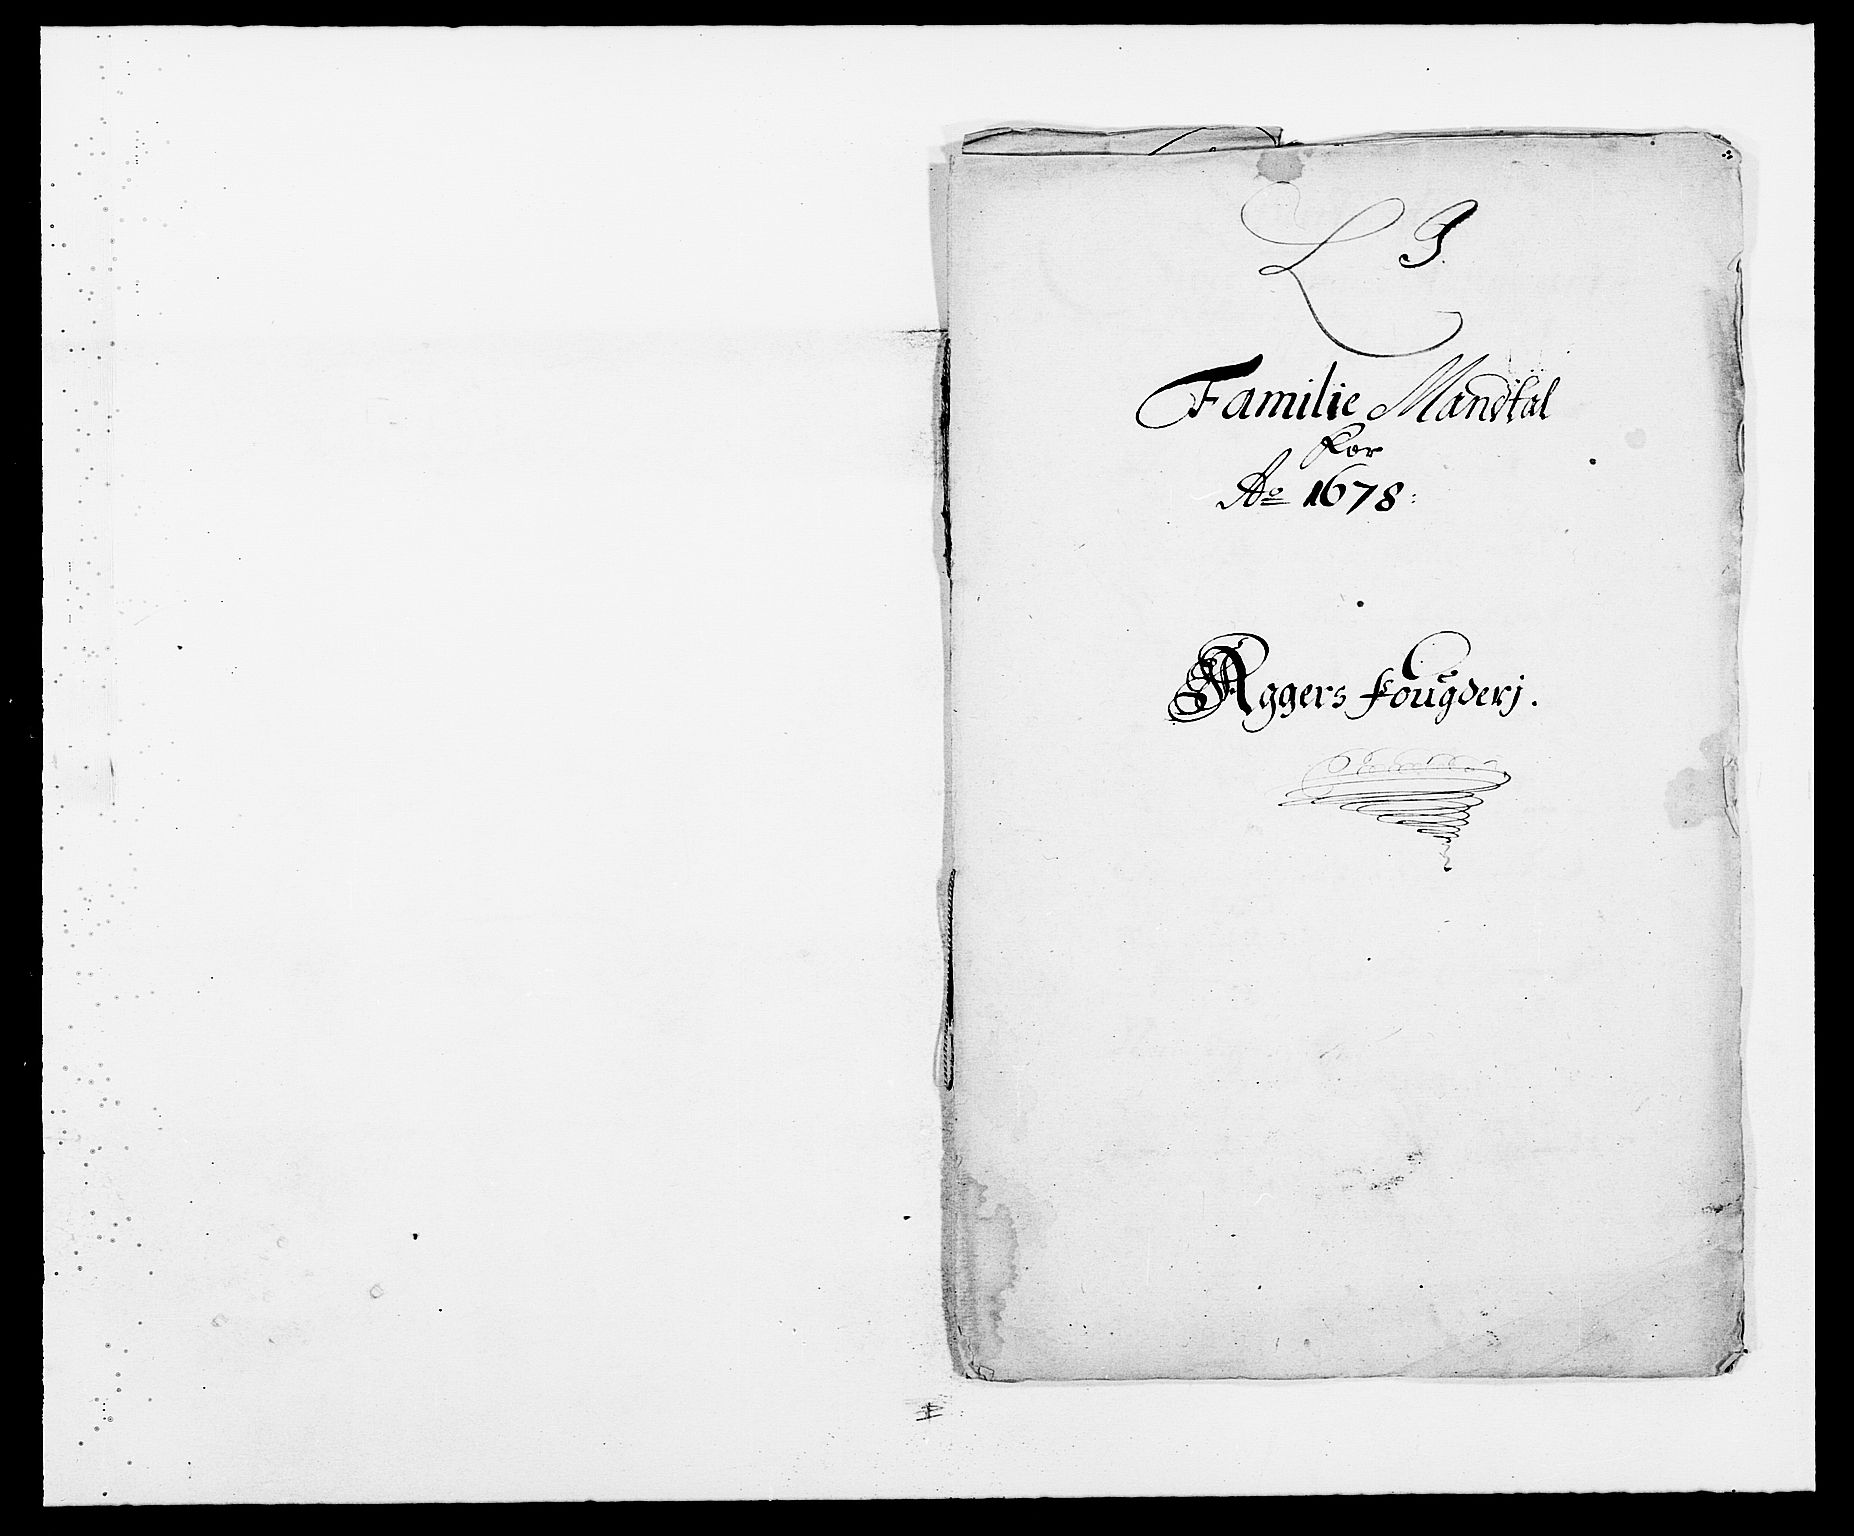 L J.
Familie Mandtal
for
Ao 1678:
Aggers fougderj.